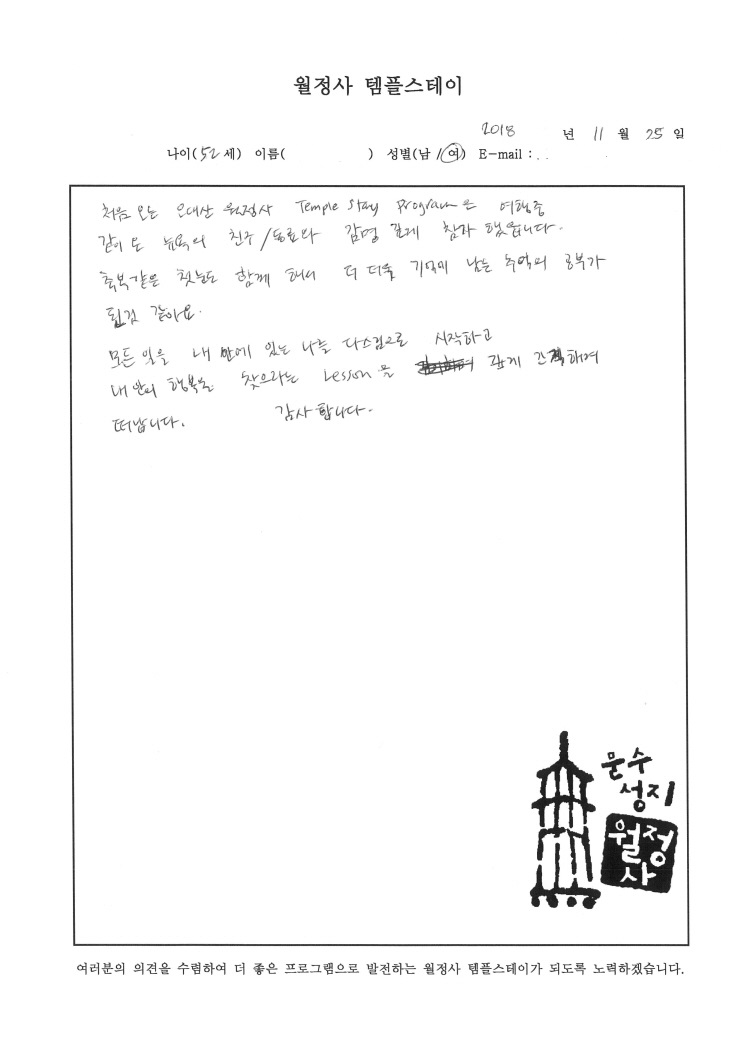 월정사 템플스테이
2018 년 11 월 25 일
나이( 52 세) 이름( ) 성별(남 / 여) E-mail :
처음 오는 오대산 월정사 Temple Stay Program은 여행중
같이 온 뉴욕의 친구/동료와 감명 깊게 참가 했읍니다.
축복같은 첫눈도 함께 해서 더 더욱 기억에 남는 추억의 공부가
될것 같아요.
모든 일을 내 안에 있는 나를 다스림으로 시작하고
내 안의 행복을 찾으라는 Lesson 을 깊게 간직하며
떠납니다. 감사 합니다.
문수
성지
월정
사
여러분의 의견을 수렴하여 더 좋은 프로그램으로 발전하는 월정사 템플스테이가 되도록 노력하겠습니다.